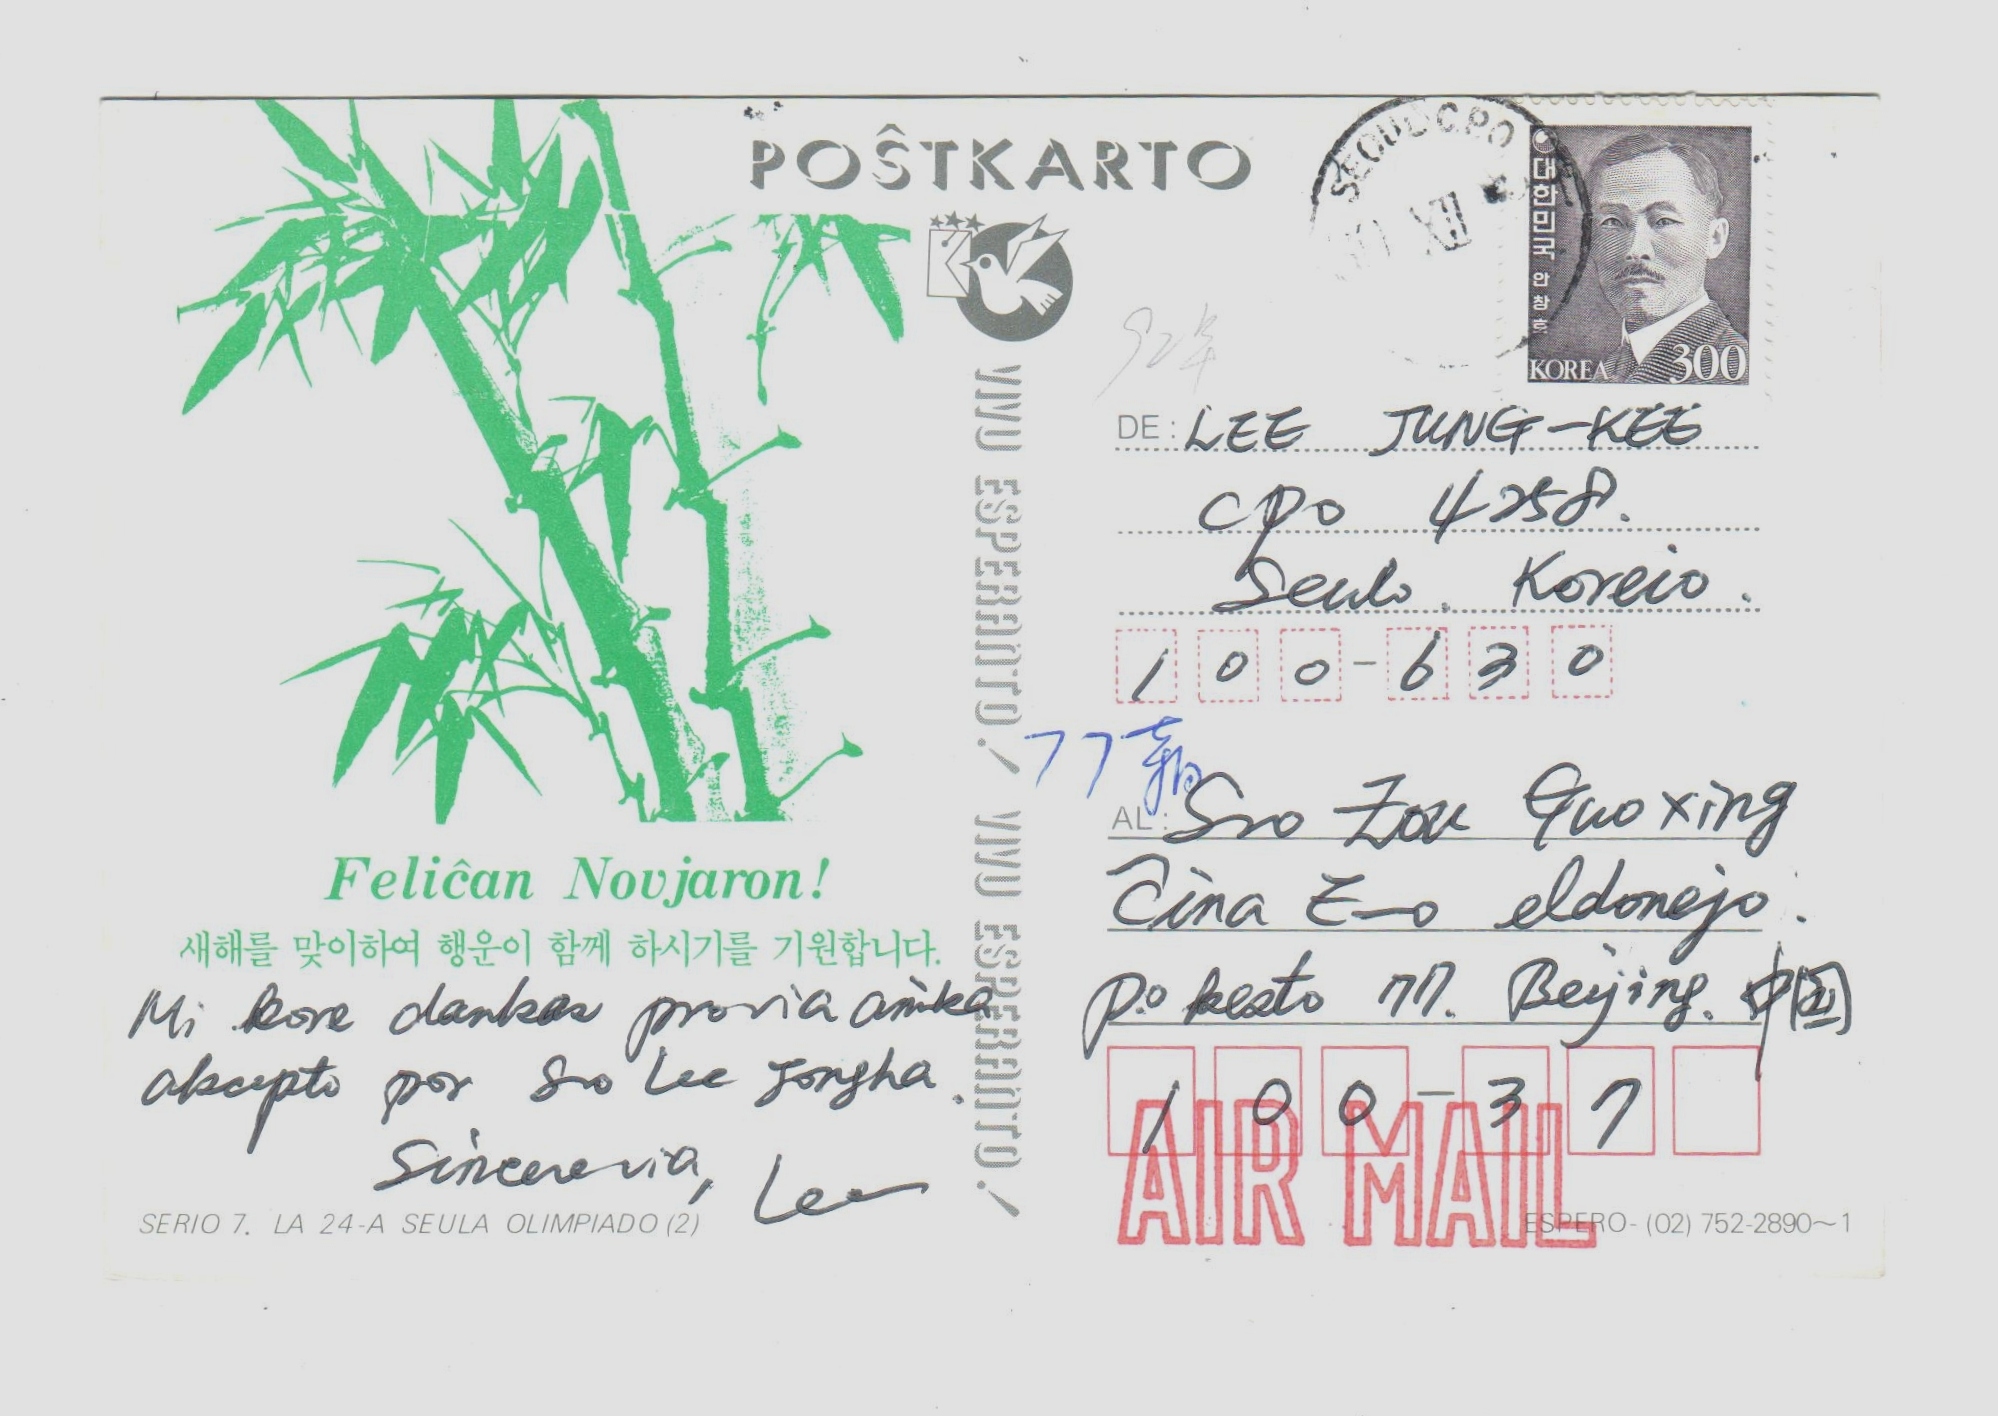 POŜTKARTO
SEOUL C.P.O
대한민국 안창호
KOREA 300
92年
VIVU ESPERANTO! VIVU ESPERANTO!
DE: LEE JUNG-KEE
CPO 4258.
Seulo. Koreio.
100-630
77
AL: Sro Zou Guoxing
Ĉina E-o eldonejo.
P.O kesto 77. Beijing. 中国
100-37
AIR MAIL
ESPERO- (02) 752-2890~1
Feliĉan Novjaron!
새해를 맞이하여 행운이 함께 하시기를 기원합니다.
Mi kore dankas pro via amika
akcepto por Sro Lee Jongha.
Sincere via, Lee
SERIO 7. LA 24-A SEULA OLIMPIADO (2)